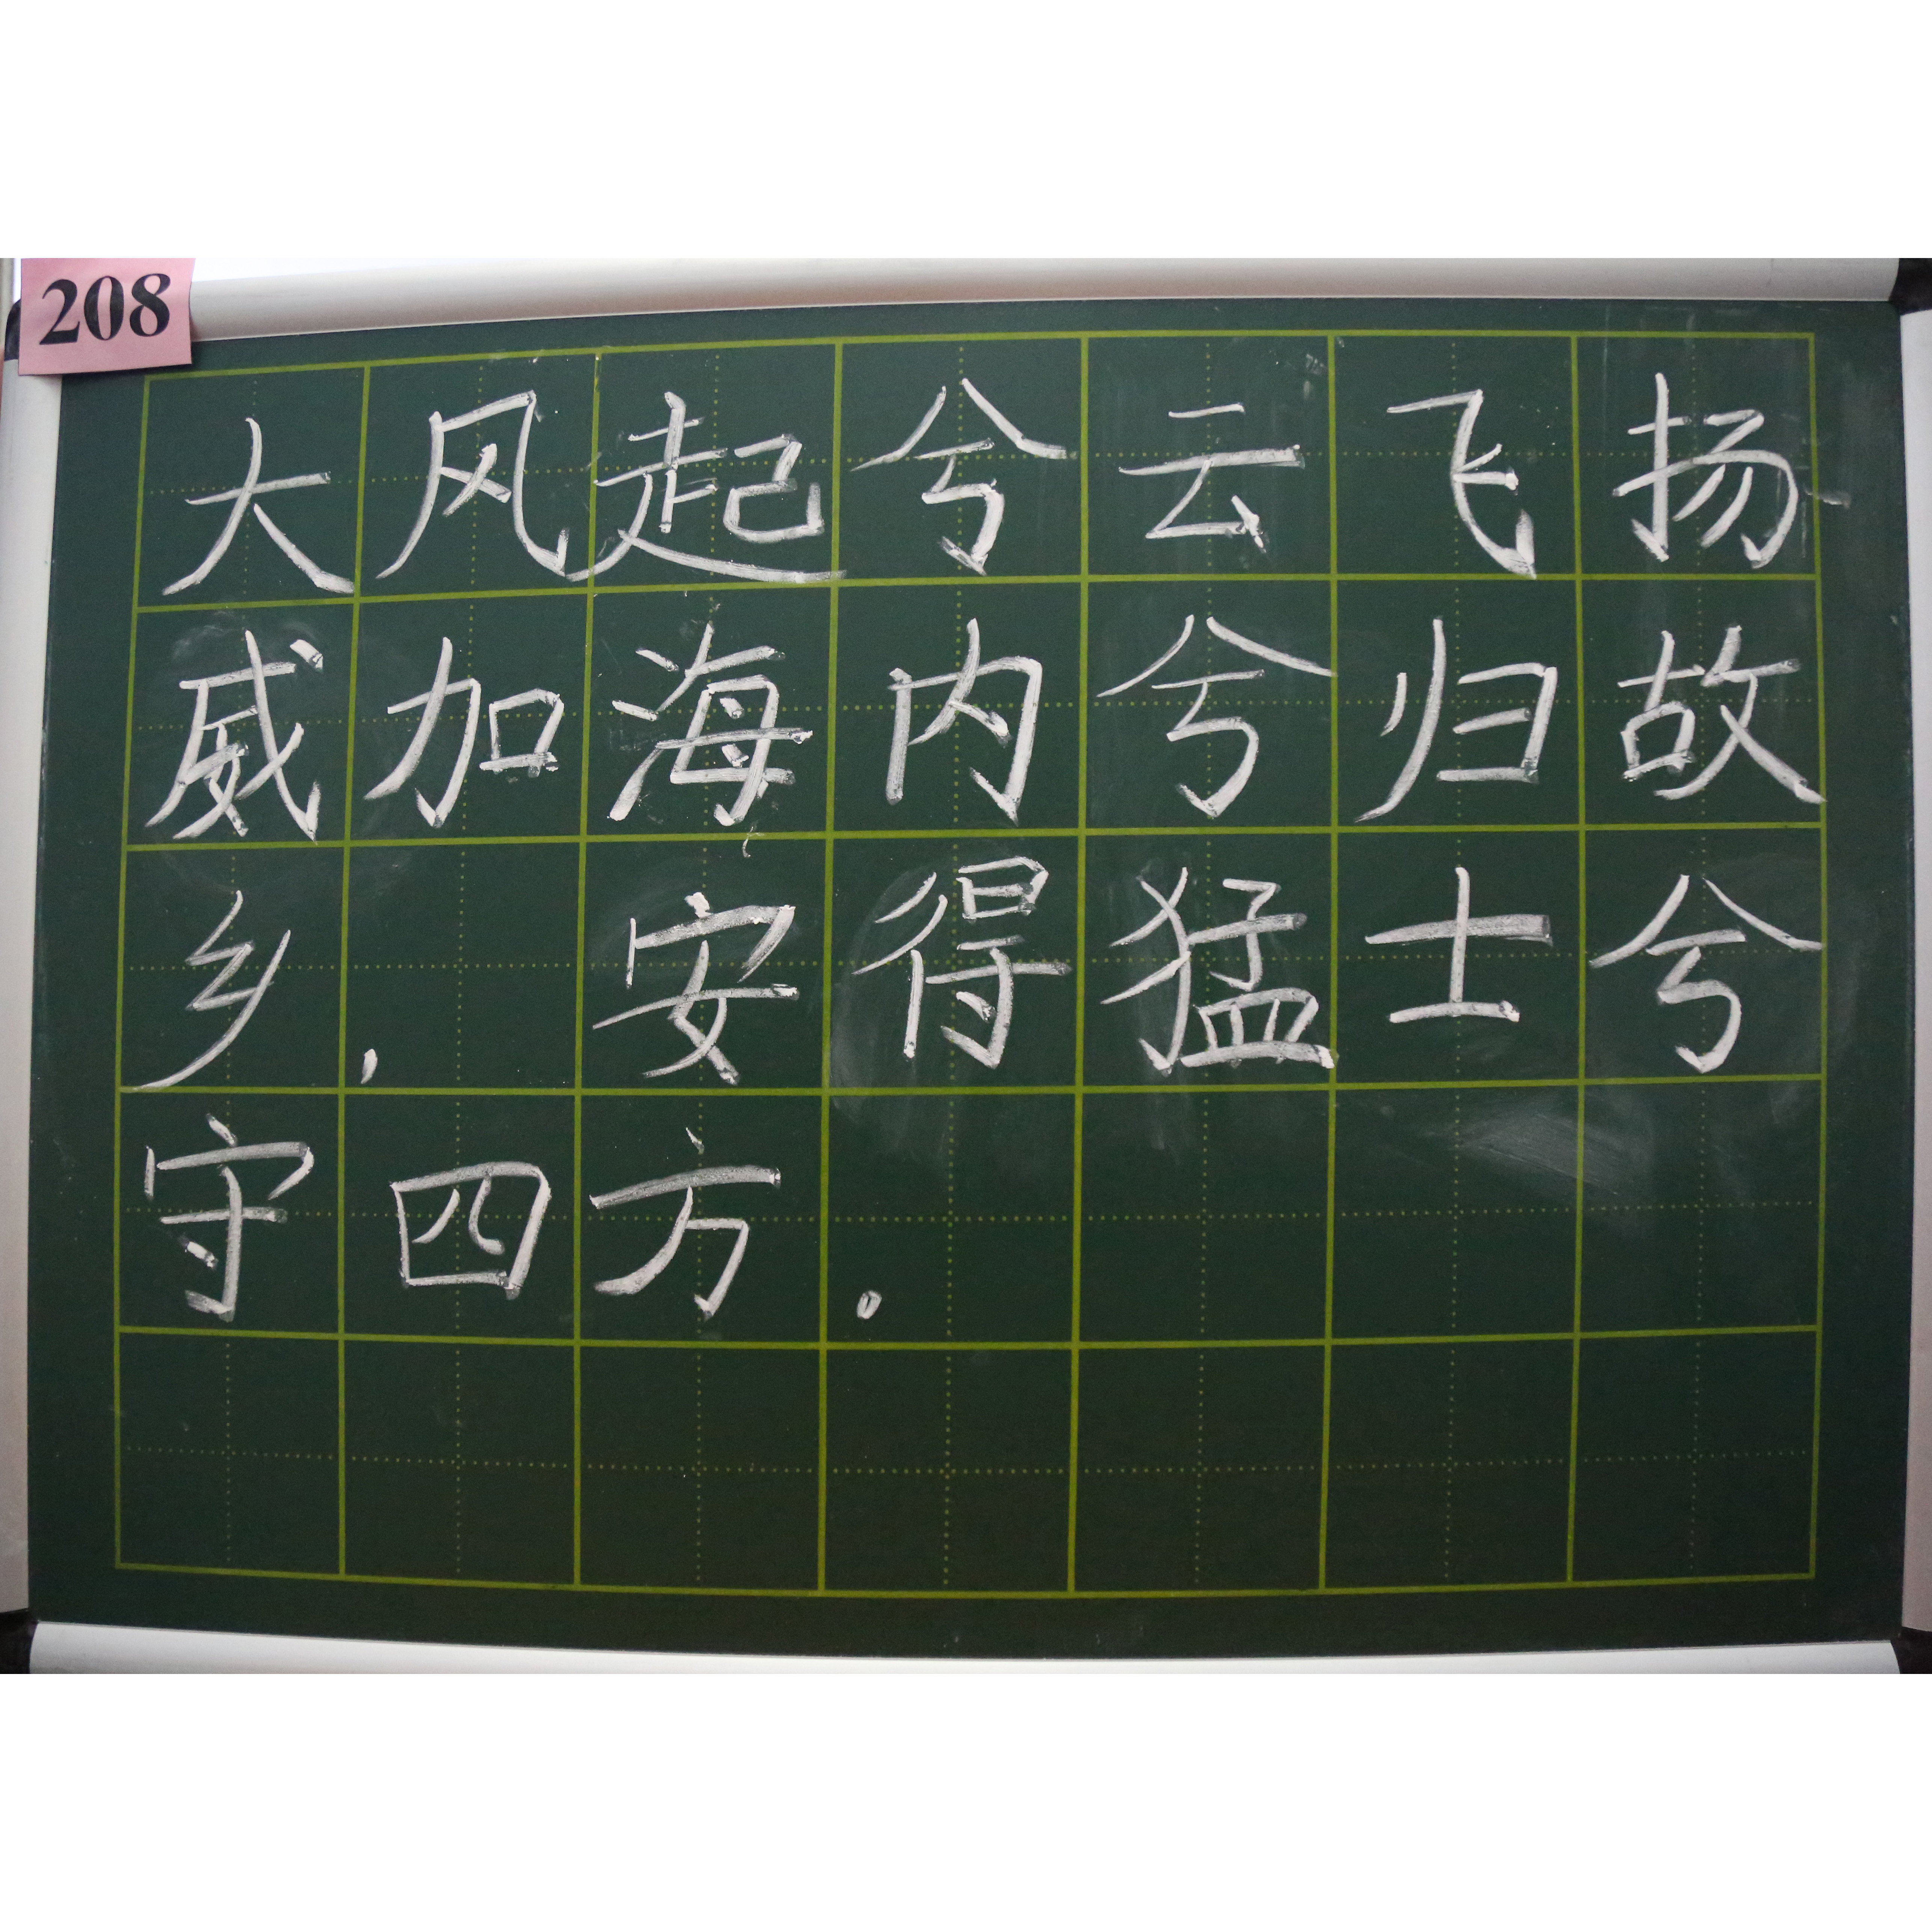 208
大风起兮云飞扬
威加海内兮归故
乡，安得猛士兮
守四方。